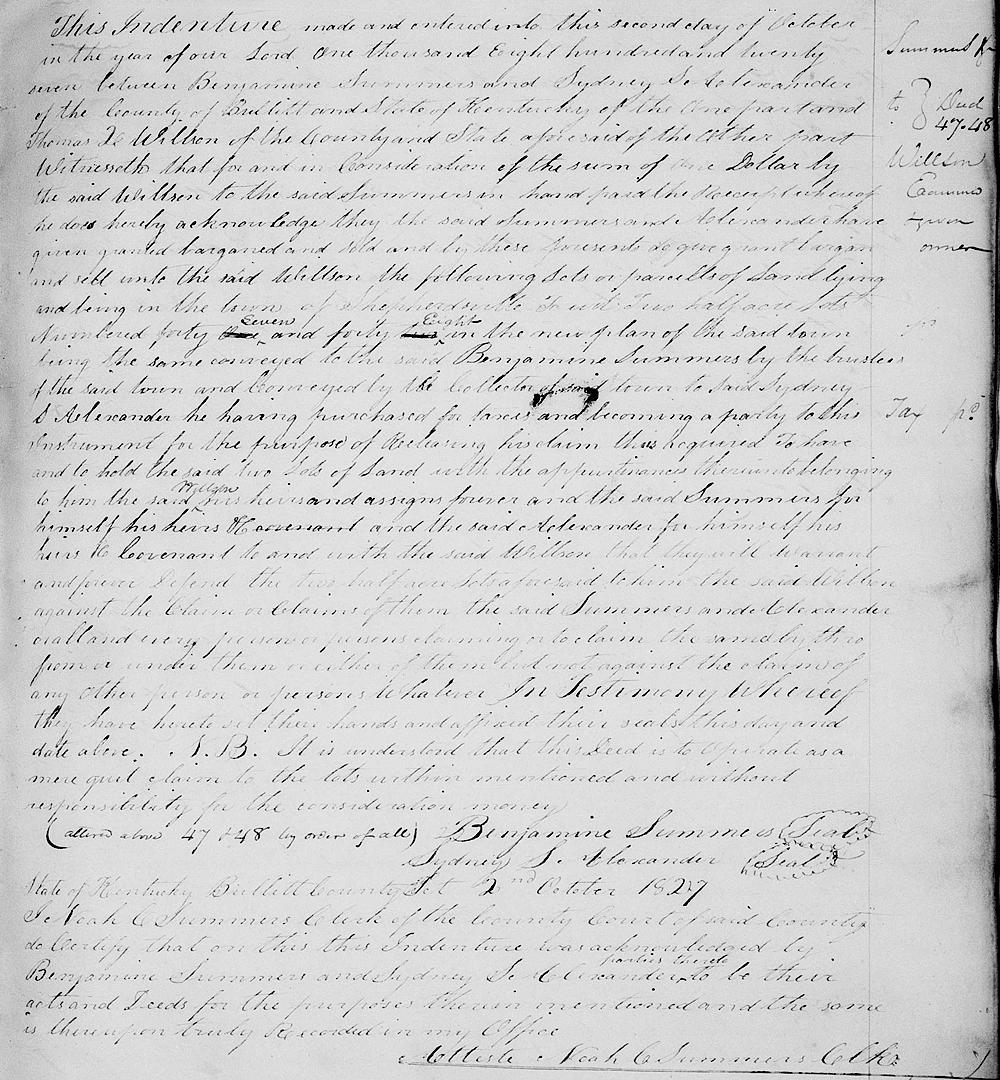 This Indenture made and entered into this second day of October
in the year of our Lord One thousand Eight hundred and twenty
seven between Benjamine Summers and Sydney S. Aclexander
of the County of Bullitt and State of Kentucky of the One part and
Thomas Willson of the County and State aforesaid of the Other part
Witnesseth that for and in Consideration of the sum of One Dollar by
the said Willson to the said Summers in hand paid the Receipt whereof
he does hereby acknowledge they the said Summers and Aclexander have
given granted barganed and sold and by these presents do give grant bargan
and sell unto the said Willson the following Lots or parcells of Land lying
and being in the town of Shepherdsville To wit Two half acre Lots
Numbered forty Seven and forty Eight in the new plan of the said town
being the same conveyed to the said Benjamine Summers by the trustees
of the said town and Conveyed by the Collector of said town to said Sydney
S Aclexander he having purchased for taxes and becoming a party to this
Instrument for the purpose of Releasing his claim thus acquired To have
and to hold the said two Lots of Land with the appurtinances thereunto belonging
to him the said Willson his heirs and assigns forever and the said Summers for
himself his heirs &c Covenant and the said Aclexander for himself his
heirs &c Covenant to and with the said Willson that they will warrant
and forever Defend the two half acre Lots aforesaid to him the said Willson
against the Claim or Claims of them the said Summers and Aclexander
or all and every person or persons claiming or to claim the same by thro
from or under them or either of them but not against the claim of
any Other person or persons whatever In Testimony Whereof
they have hereto set their hands and affixed their seals this day and
date above. N.B. It is understood that this Deed is to Operate as a
mere quit claim to the lots within mentioned and without
responsibility for the consideration money
(altered above 47 & 48 by order of all) Benjamine Summers (Seal)
Sydney S. Alexander (Seal)
State of Kentucky Bullitt County Sct 2nd October 1827
I Noah C Summers Clerk of the County Court of said County
do Certify that on this this Indenture was acknowledged by
Benjamine Summers and Sydney S. Aclexander parties thereto to be their
acts and Deeds for the purposes therein mentioned and the same
is thereupon truly Recorded in my Office
Atteste Noah C Summers Clk
Summers
to } Deed
47.48
Willson
Examined
Tax pd